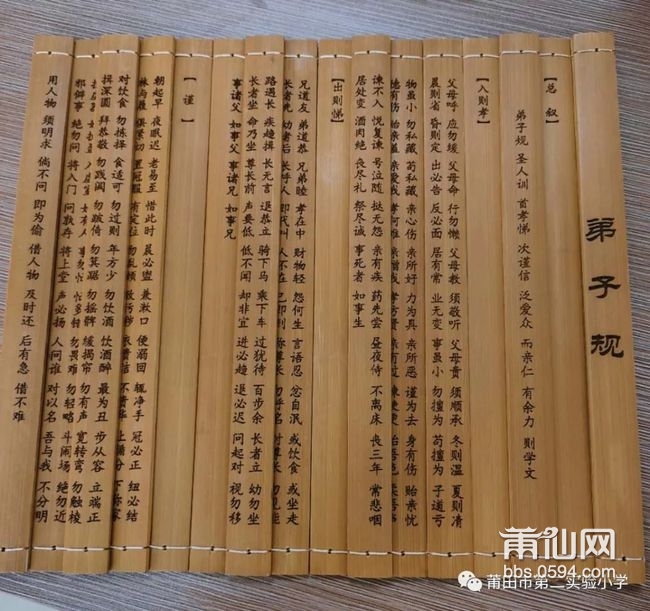 弟子规
【总叙】
弟子规 圣人训 首孝悌 次谨信 泛爱众 而亲仁 有余力 则学文
【入则孝】
父母呼 应勿缓 父母命 行勿懒 父母教 须敬听 父母责 须顺承 冬则温 夏则清
晨则省 昏则定 出必告 反必面 居有常 业无变 事虽小 勿擅为 苟擅为 子道亏
物虽小 勿私藏 苟私藏 亲心伤 亲所好 力为具 亲所恶 谨为去 身有伤 贻亲忧
德有伤 贻亲羞 亲爱我 孝何难 亲憎我 孝方贤 亲有过 谏使更 怡吾色 柔吾声
谏不入 悦复谏 号泣随 挞无怨 亲有疾 药先尝 昼夜侍 不离床 丧三年 常悲咽
居处变 酒肉绝 丧尽礼 祭尽诚 事死者 如事生
【出则悌】
兄道友 弟道恭 兄弟睦 孝在中 财物轻 怨何生 言语忍 忿自泯 或饮食 或坐走
长者先 幼者后 长呼人 即代叫 人不在 己即到 称尊长 勿呼名 对尊长 勿见能
路遇长 疾趋揖 长无言 退恭立 骑下马 乘下车 过犹待 百步余 长者立 幼勿坐
长者坐 命乃坐 尊长前 声要低 低不闻 却非宜 进必趋 退必迟 问起对 视勿移
事诸父 如事父 事诸兄 如事兄
【谨】
朝起早 夜眠迟 老易至 惜此时 晨必盥 兼漱口 便溺回 辄净手 冠必正 纽必结
袜与履 俱紧切 置冠服 有定位 勿乱顿 致污秽 衣贵洁 不贵华 上循分 下称家
对饮食 勿拣择 食适可 勿过则 年方少 勿饮酒 饮酒醉 最为丑 步从容 立端正
揖深圆 拜恭敬 勿践阈 勿跛倚 勿箕踞 勿摇髀 缓揭帘 勿有声 宽转弯 勿触棱
入虚室 如有人 事勿忙 忙多错 勿畏难 勿轻略 斗闹场 绝勿近
邪僻事 绝勿问 将入门 问孰存 将上堂 声必扬 人问谁 对以名 吾与我 不分明
用人物 须明求 倘不问 即为偷 借人物 及时还 后有急 借不难
莆仙网
bbs.0594.com
莆田市第二实验小学